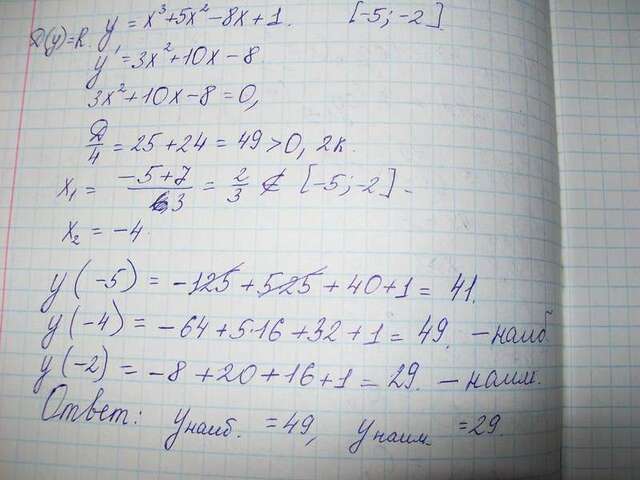 D(y)=R. y = x³+5x²-8x+1. [-5;-2]
y' = 3x²+10x-8
3x²+10x-8=0,
D/4 = 25+24 = 49 >0, 2к.
x₁ = (-5+7)/3 = 2/3 ∉ [-5;-2].
x₂ = -4.
y(-5) = -125+5·25+40+1 = 41.
y(-4) = -64+5·16+32+1 = 49. - наиб.
y(-2) = -8+20+16+1 = 29. - наим.
Ответ: y наиб. =49, y наим. =29.